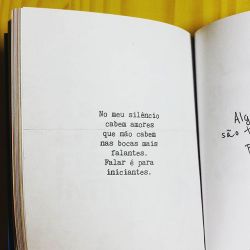 No meu silêncio
cabem amores
que não cabem
nas bocas mais
falantes.
Falar é para
iniciantes.
Alg
são t